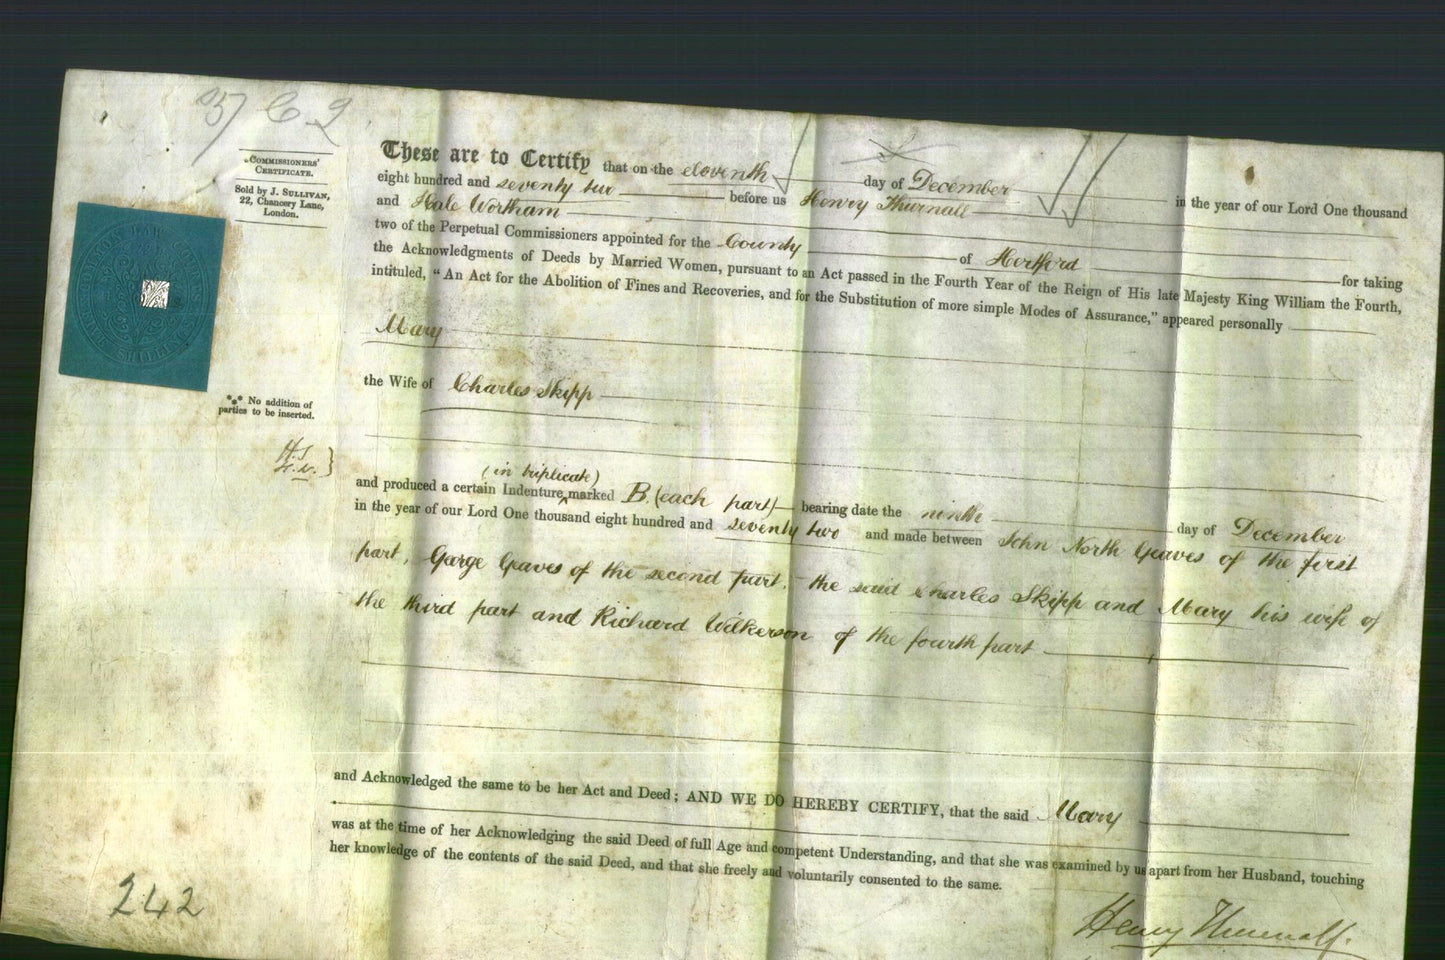 37 C 2
COMMISSIONERS'
CERTIFICATE.
Sold by J. SULLIVAN,
22, Chancery Lane,
London.
*** No addition of
parties to be inserted.
242
These are to Certify that on the eleventh day of December in the year of our Lord One thousand
eight hundred and seventy two before us Henry Thurnall
and Hale Wortham
two of the Perpetual Commissioners appointed for the County of Hertford for taking
the Acknowledgments of Deeds by Married Women, pursuant to an Act passed in the Fourth Year of the Reign of His late Majesty King William the Fourth,
intituled, "An Act for the Abolition of Fines and Recoveries, and for the Substitution of more simple Modes of Assurance," appeared personally
Mary
the Wife of Charles Skipp
(in triplicate)
and produced a certain Indenture ^ marked B. (each part) bearing date the ninth day of December
in the year of our Lord One thousand eight hundred and seventy two and made between John North Greaves of the first
part, George Greaves of the second part, the said Charles Skipp and Mary his wife of
the third part and Richard Wilkerson of the fourth part
and Acknowledged the same to be her Act and Deed; AND WE DO HEREBY CERTIFY, that the said Mary
was at the time of her Acknowledging the said Deed of full Age and competent Understanding, and that she was examined by us apart from her Husband, touching
her knowledge of the contents of the said Deed, and that she freely and voluntarily consented to the same.
Henry Thurnall.